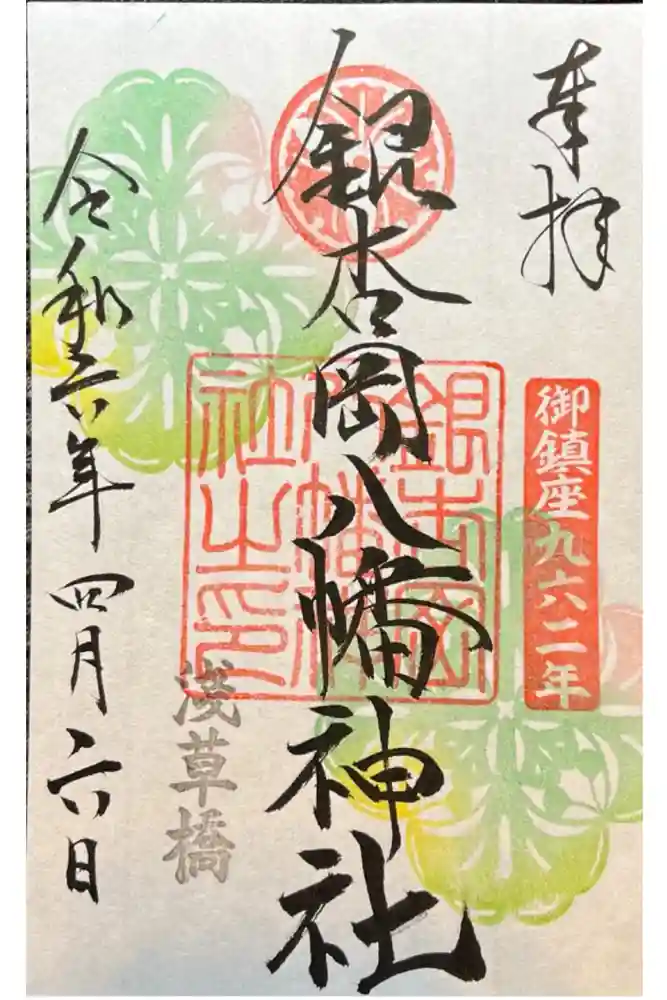 奉拝
御鎮座九六二年
銀杏岡八幡神社
銀杏岡八幡神社之印
淺草橋
令和六年四月二六日